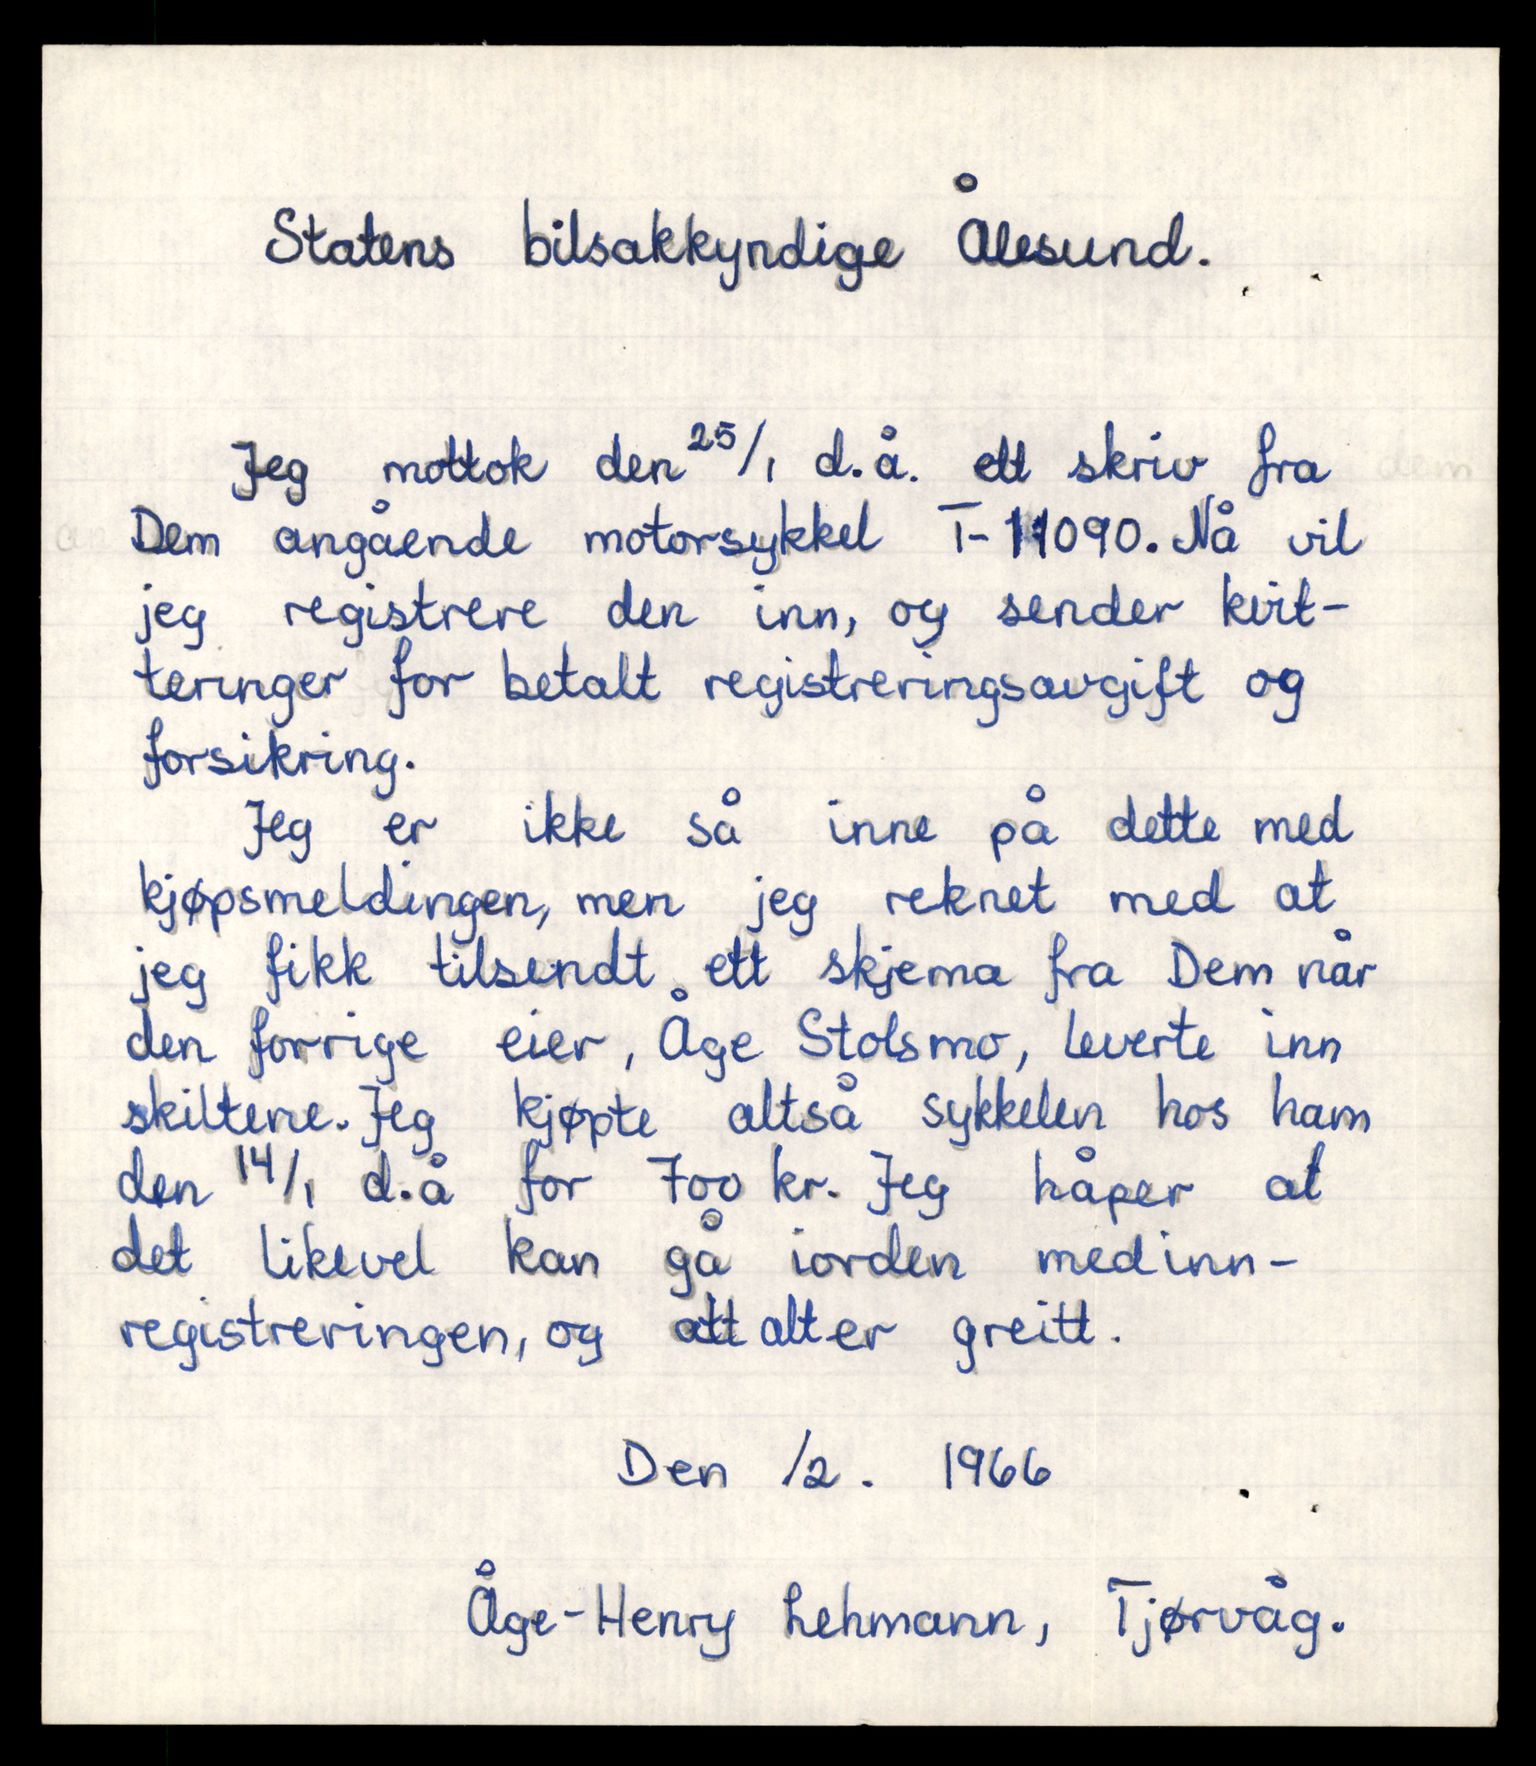 Statens bilsakkyndige Ålesund.
Jeg mottok den 25/1 d.å. ett skriv fra
Dem angående motorsykkel T-11090. Nå vil
jeg registrere den inn, og sender kvit-
teringer for betalt registreringsavgift og
forsikring.
Jeg er ikke så inne på dette med
kjøpsmeldingen, men jeg reknet med at
jeg fikk tilsendt ett skjema fra Dem når
den forrige eier, Åge Stolsmo, leverte inn
skiltene. Jeg kjøpte altså sykkelen hos ham
den 14/1 d.å for 700 kr. Jeg håper at
det likevel kan gå iorden med inn-
registreringen, og att alt er greitt.
Den 1/2. 1966
Åge-Henry Lehmann, Tjørvåg.